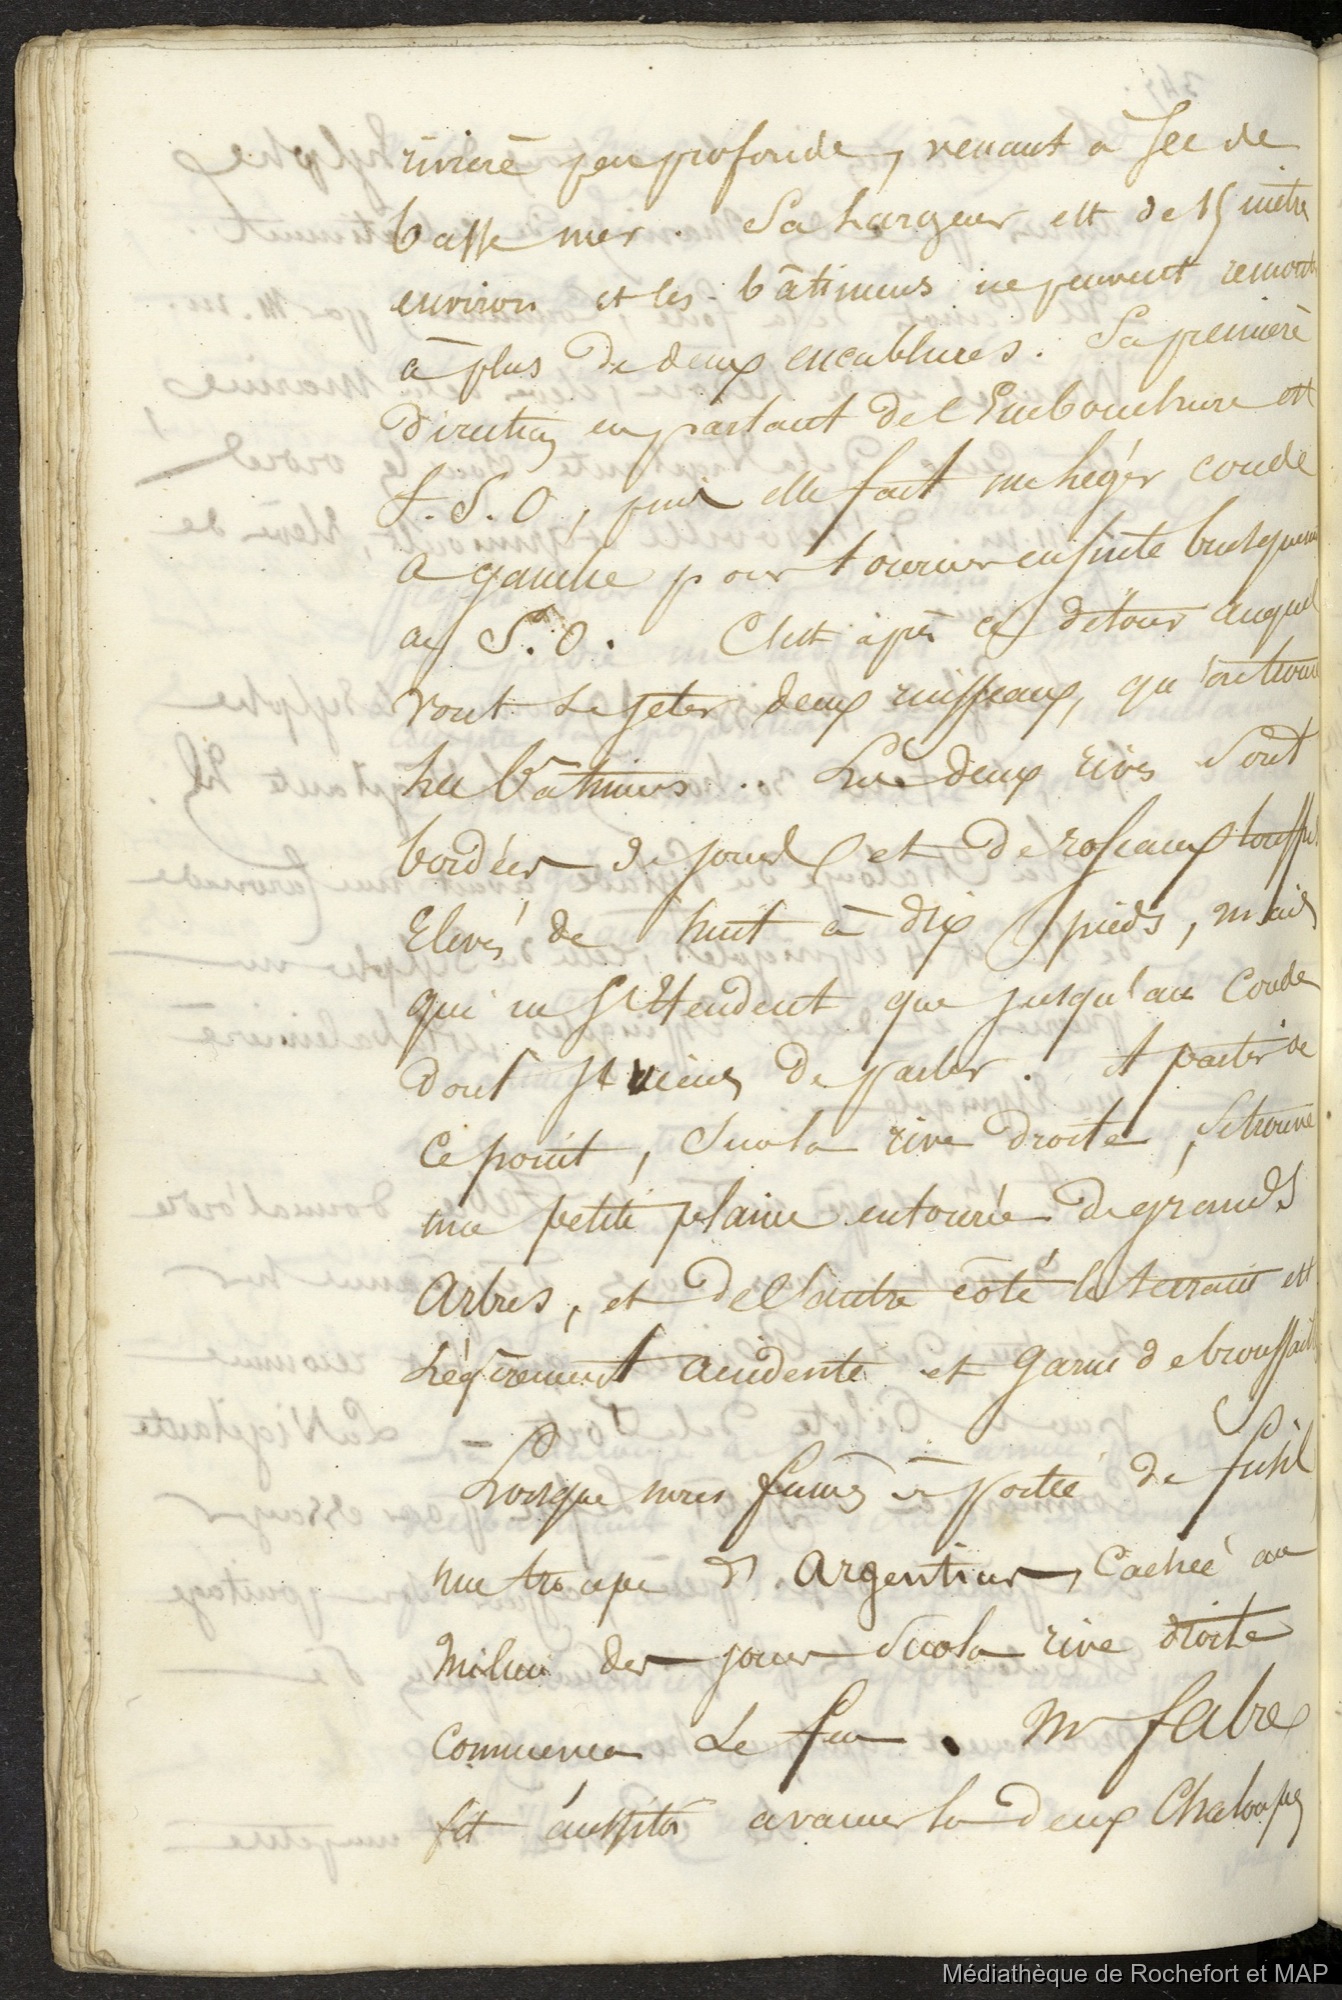 rivière peu profonde, venant à sec de
basse mer. Sa Largeur est de 15 mètres
environ et les bâtimens ne peuvent remonter
à plus de deux encablures. Sa première
direction en partant de l'Embouchure est
S.S.O, puis elle fait un Léger coude
à gauche pour tourner ensuite brusquement
au S.O. C'est après ce détour auquel
vont se jeter deux ruisseaux, qu'on trouve
les bâtimens. Les deux rives sont
bordées de joncs et de roseaux touffus
Elevés de huit à dix pieds, mais
qui ne s'étendent que jusqu'au Coude
dont je viens de parler. A partir de
ce point, sur la rive droite, se trouve
une petite plaine entourée de grands
Arbres, et de l'autre côté le terrain est
Légèrement accidenté et garni de broussailles
Lorsque nous fumes à portée de fusil
une troupe d'Argentins, Cachée au
milieu des joncs sur la rive droite
commença le feu. Mr fabre
fit aussitôt avancer les deux Chaloupes
Médiathèque de Rochefort et MAP